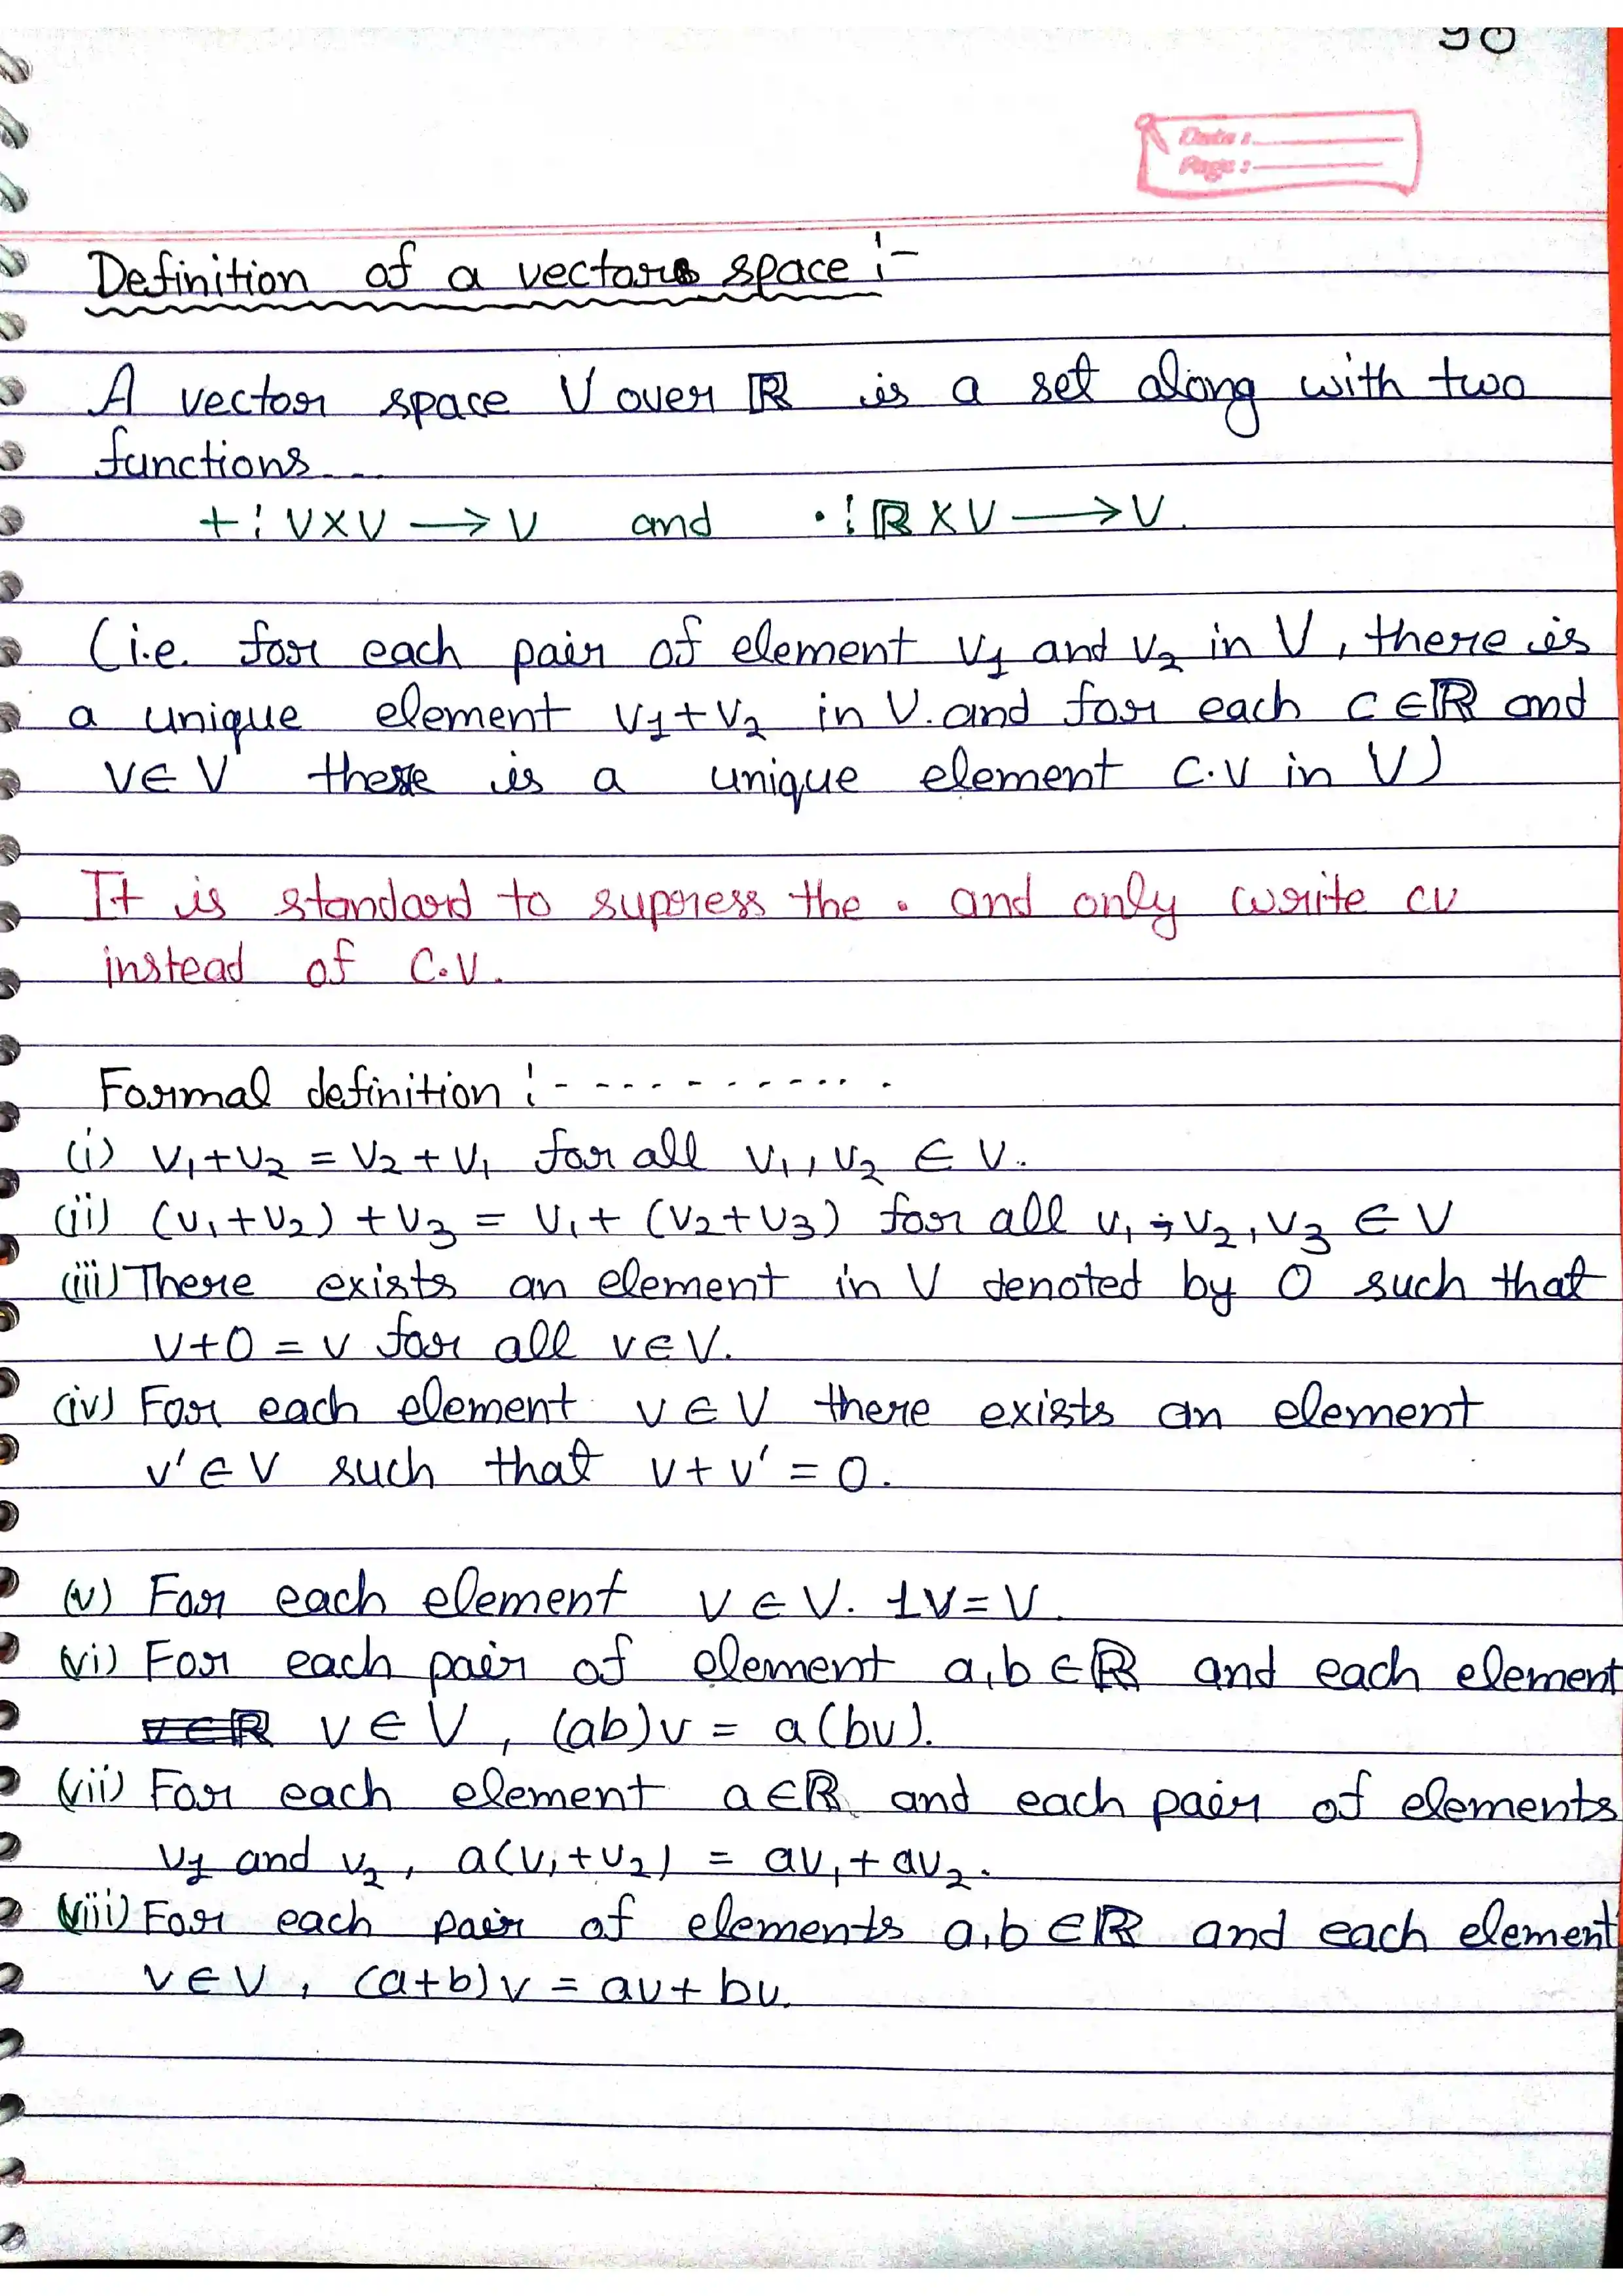 90
Date :
Page :
Definition of a vector space :-
A vector space V over ℝ is a set along with two
functions...
+ : V×V ⟶ V and · : ℝ×V ⟶ V.
(i.e. for each pair of element v₁ and v₂ in V, there is
a unique element v₁+v₂ in V. and for each c∈ℝ and
v∈V there is a unique element c.v in V)
It is standard to supress the . and only write cv
instead of c.v.
Formal definition :- - - - - - - - - - -
(i) v₁+v₂ = v₂+v₁ for all v₁, v₂ ∈ V.
(ii) (v₁+v₂)+v₃ = v₁+(v₂+v₃) for all v₁, v₂, v₃ ∈ V
(iii) There exists an element in V denoted by 0 such that
v+0 = v for all v∈V.
(iv) For each element v∈V there exists an element
v'∈V such that v+v' = 0.
(v) For each element v∈V. 1v=v.
(vi) For each pair of element a,b∈ℝ and each element
v∈V, (ab)v = a(bv).
(vii) For each element a∈ℝ and each pair of elements
v₁ and v₂, a(v₁+v₂) = av₁+av₂.
(viii) For each pair of elements a,b∈ℝ and each element
v∈V, (a+b)v = av+bv.